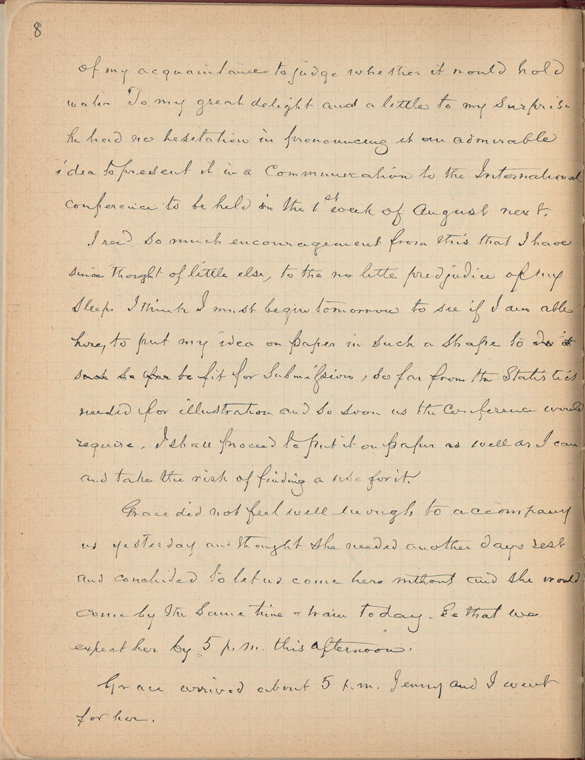 8
of my acquaintance to judge whether it would hold
water To my great delight and a little to my surprise
he had no hesitation in pronouncing it an admirable
idea to present it in a Communication to the International
conference to be held in the 1st week of August next.
I read so much encouragement from this that I have
since thought of little else, to the no little predjudice of my
sleep. I think I must begin tomorrow to see if I am able
here, to put my idea on paper in such a shape to
be fit for Submission, so far from the Statistics
needed for illustration and so soon as the Conference would
require. I shall proceed to put it on paper as well as I can
and take the risk of finding a use for it.
Grace did not feel well enough to accompany
us yesterday and thought she needed another days rest
and concluded to let us come here without and she would
come by the same time - train today. So that we
expect her by 5 p.m. this afternoon.
Grace arrived about 5 p.m. Jenny and I went
for her.